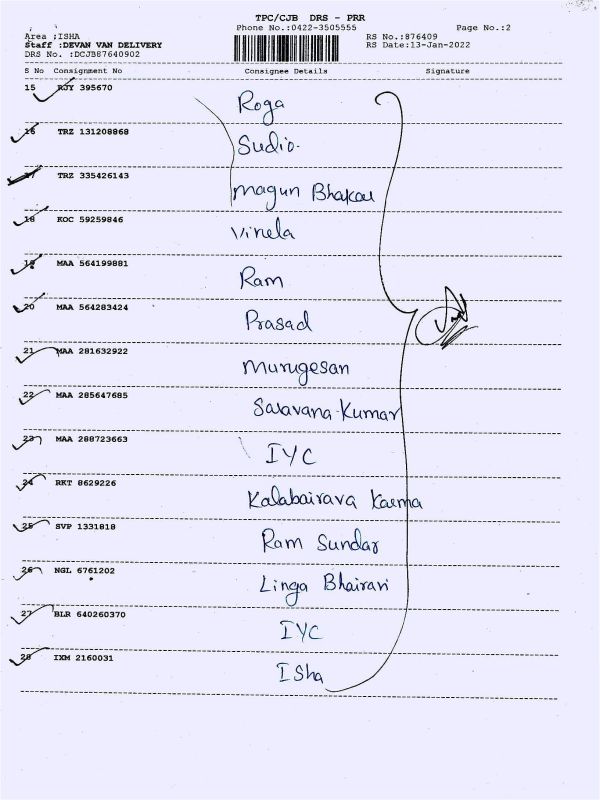 TPC/CJB DRS - PRR
Area ;ISHA Phone No.:0422-3505555 Page No.:2
Staff :DEVAN VAN DELIVERY RS No.:876409
DRS No. :DCJB87640902 RS Date:13-Jan-2022
S No Consignment No Consignee Details Signature
15 RJY 395670 Roga
16 TRZ 131208868 Sudio.
17 TRZ 335426143 Magun
18 KOC 59259846 Vinela
19 MAA 564199881 Ram
20 MAA 564283424 Prasad
21 MAA 281632922 Murugesan
22 MAA 285647685 Saravana Kumar
23 MAA 288723663 IYC
24 RKT 8629226 Kalabairava Karma
25 SVP 1331818 Ram Sundar
26 NGL 6761202 Linga Bhairavi
27 BLR 640260370 IYC
28 IXM 2160031 ISha